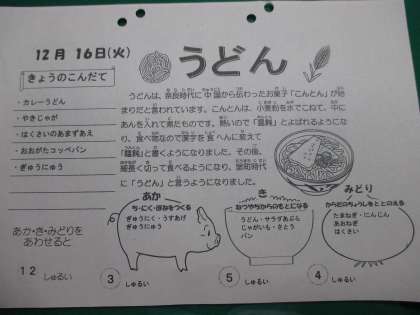 12月 16日(火)
うどん
きょうのこんだて
・カレーうどん
・やきじゃが
・はくさいのあまずあえ
・おおがたコッペパン
・ぎゅうにゅう
うどんは、奈良時代に中国から伝わったお菓子「こんとん」が始
まりだと言われています。こんとんは、小麦粉を水でこねて、中に
あんを入れて煮たものです。熱いので「温飩」とよばれるようにな
り、食べ物なので漢字を食へんに変えて
「饂飩」と書くようになりました。その後、
細長く切って食べるようになり、室町時代
に「うどん」と言うようになりました。
あか
ち・にく・ほねをつくる
ぎゅうにく・うすあげ
ぎゅうにゅう
き
ねつやちからのもとになる
うどん・サラダあぶら
じゃがいも・さとう
パン
みどり
からだのちょうしをととのえる
たまねぎ・にんじん
あおねぎ
はくさい
あか・き・みどりを
あわせると
12 しゅるい
3 しゅるい
5 しゅるい
4 しゅるい